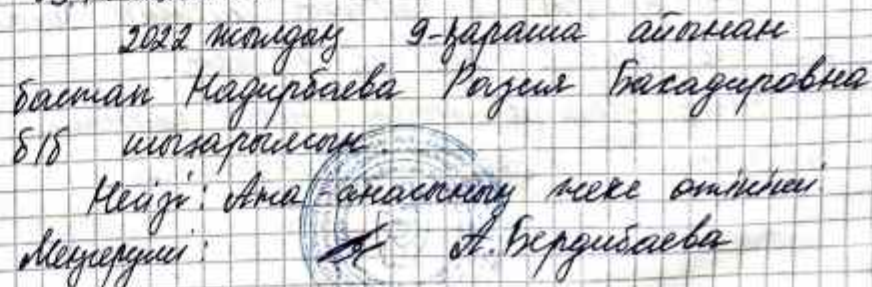 2022 жылдың 9-қараша айынан
бастап Надирбаева Разия Бахадировна
б/б шығарылсын.
Негізі: Ата-анасының жеке өтініші
Меңгеруші: А. Бердибаева